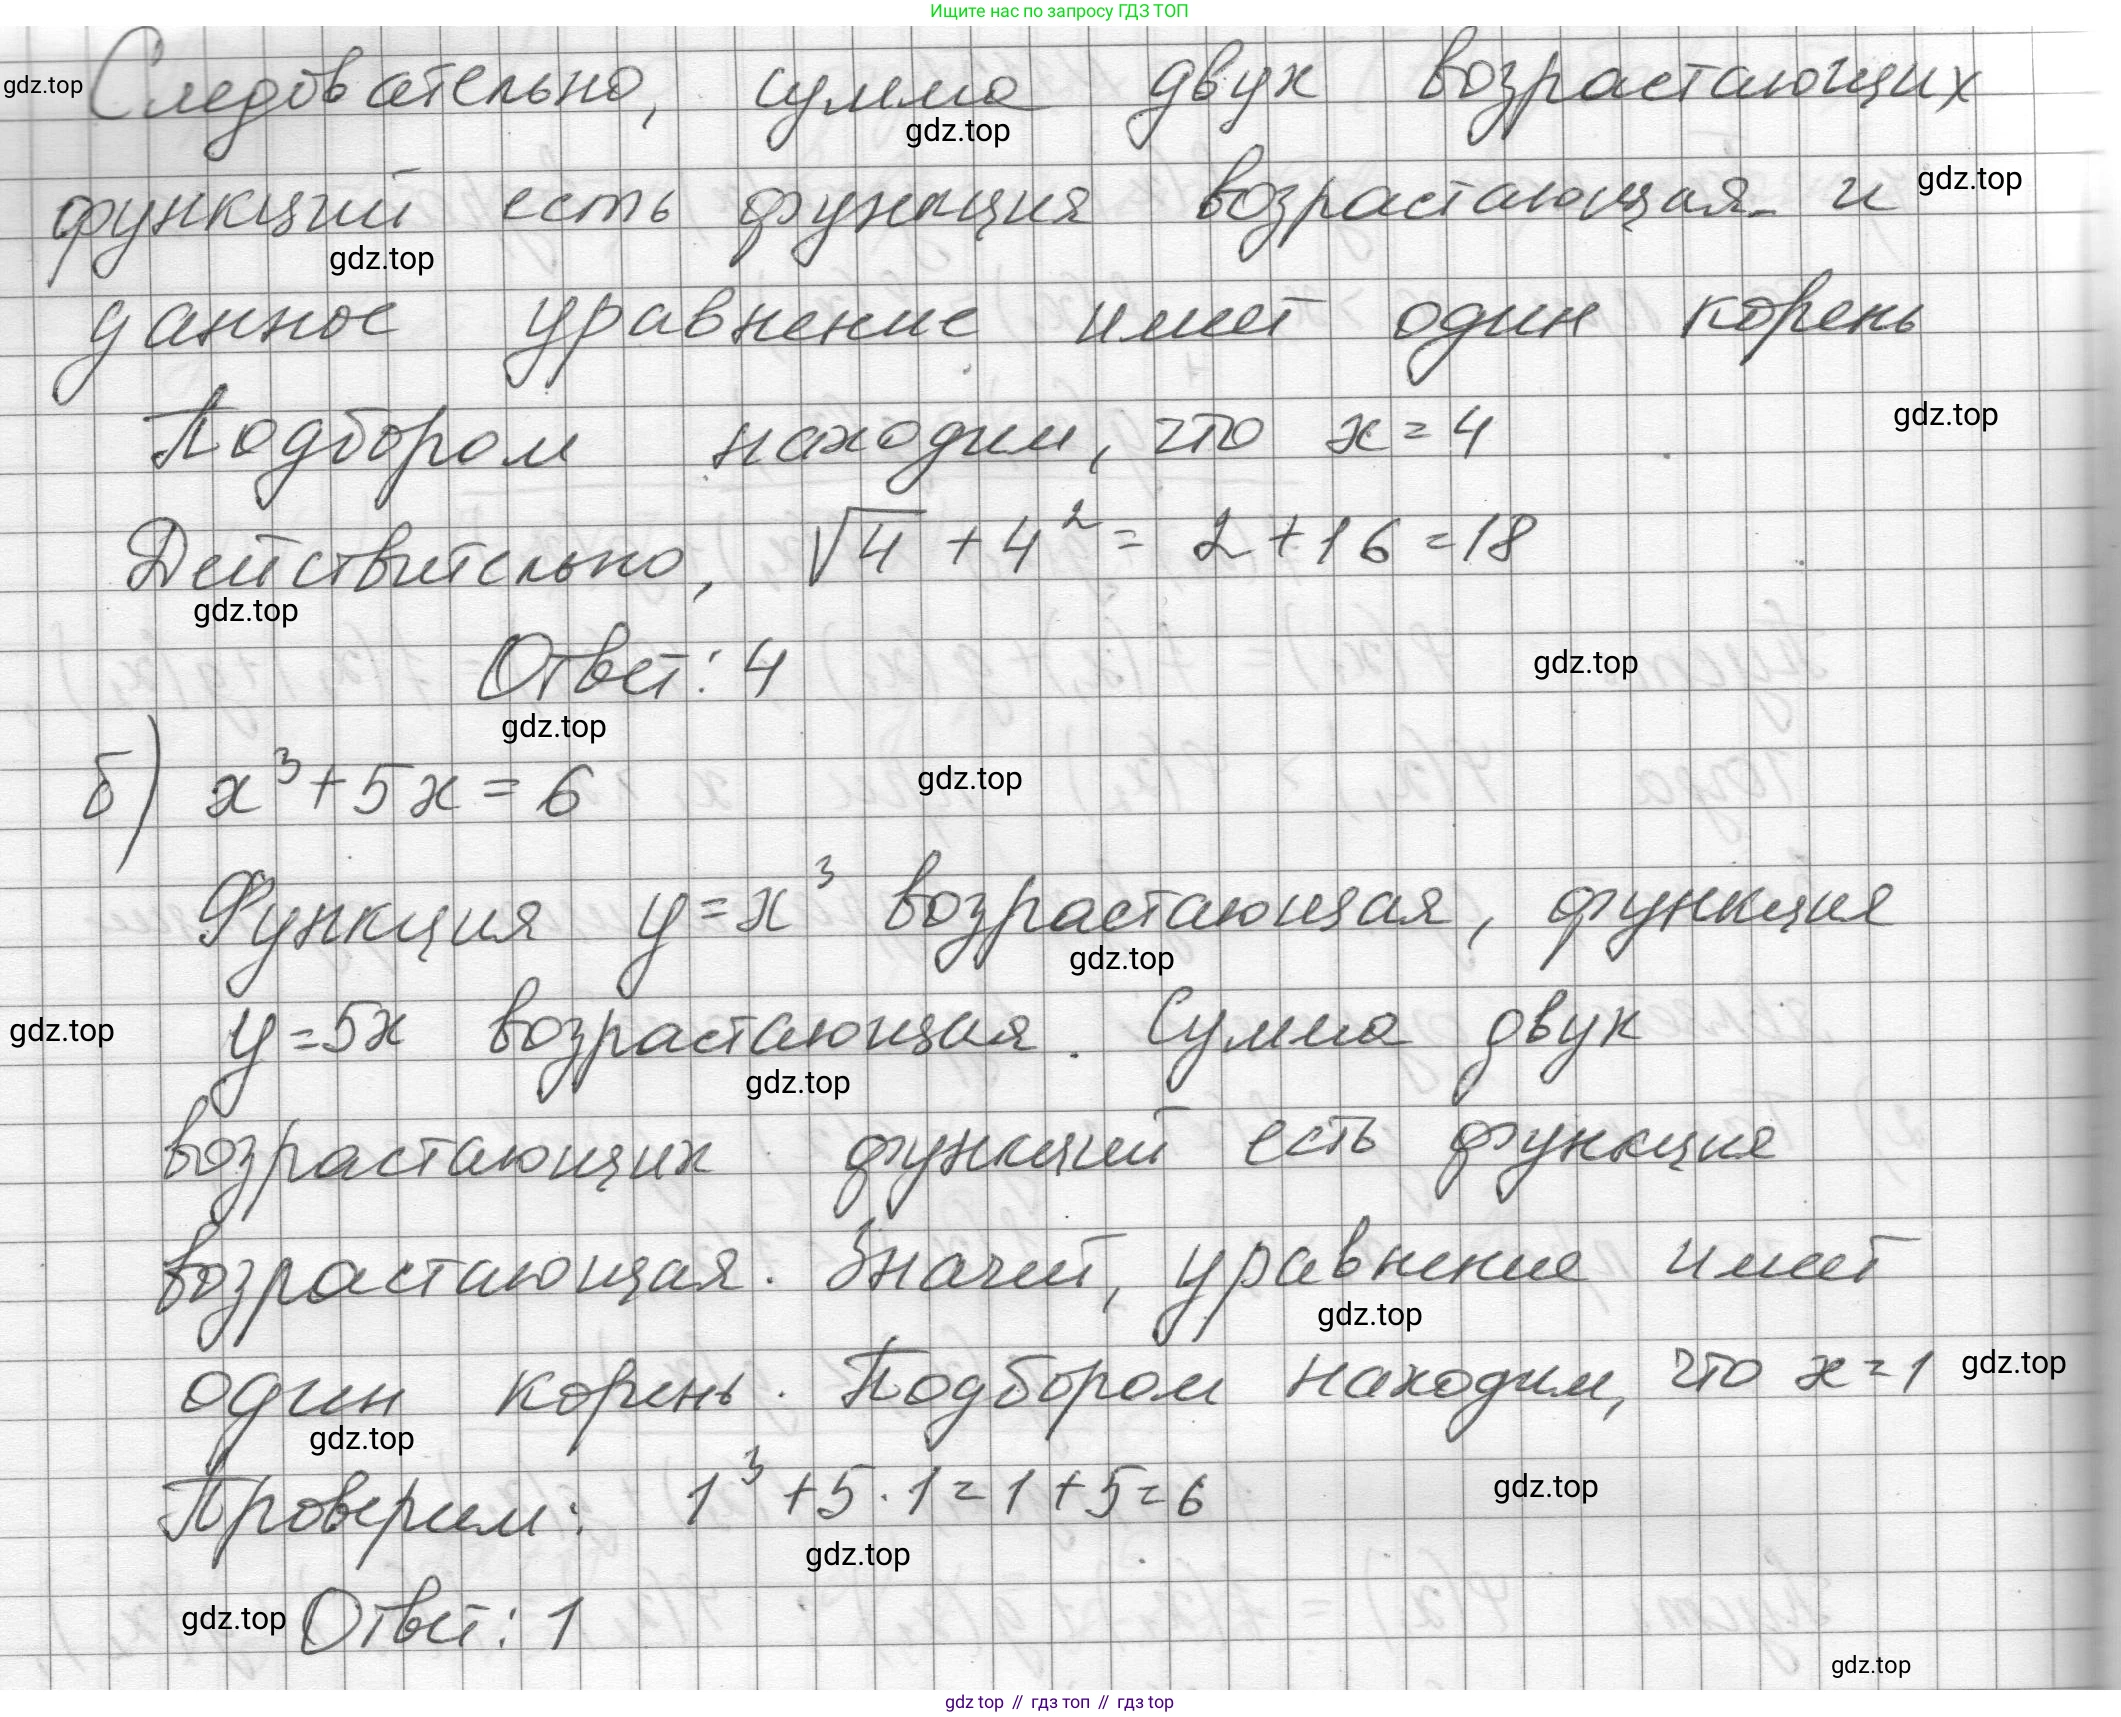 Ищите нас по запросу ГДЗ ТОП
gdz.top Следовательно, сумма двух возрастающих
gdz.top
функций есть функция возрастающая и gdz.top
gdz.top
данное уравнение имеет один корень
Подбором находим, что x = 4 gdz.top
Действительно, √4 + 4² = 2 + 16 = 18
gdz.top
Ответ: 4 gdz.top
gdz.top
б) x³ + 5x = 6 gdz.top
Функция y = x³ возрастающая, функция
gdz.top
gdz.top y = 5x возрастающая. Сумма двух
gdz.top
возрастающих функций есть функция
возрастающая. Значит, уравнение имеет
gdz.top
один корень. Подбором находим, что x = 1 gdz.top
gdz.top
Проверим: 1³ + 5 · 1 = 1 + 5 = 6 gdz.top
gdz.top
gdz.top Ответ: 1
gdz.top
gdz top // гдз топ // гдз top